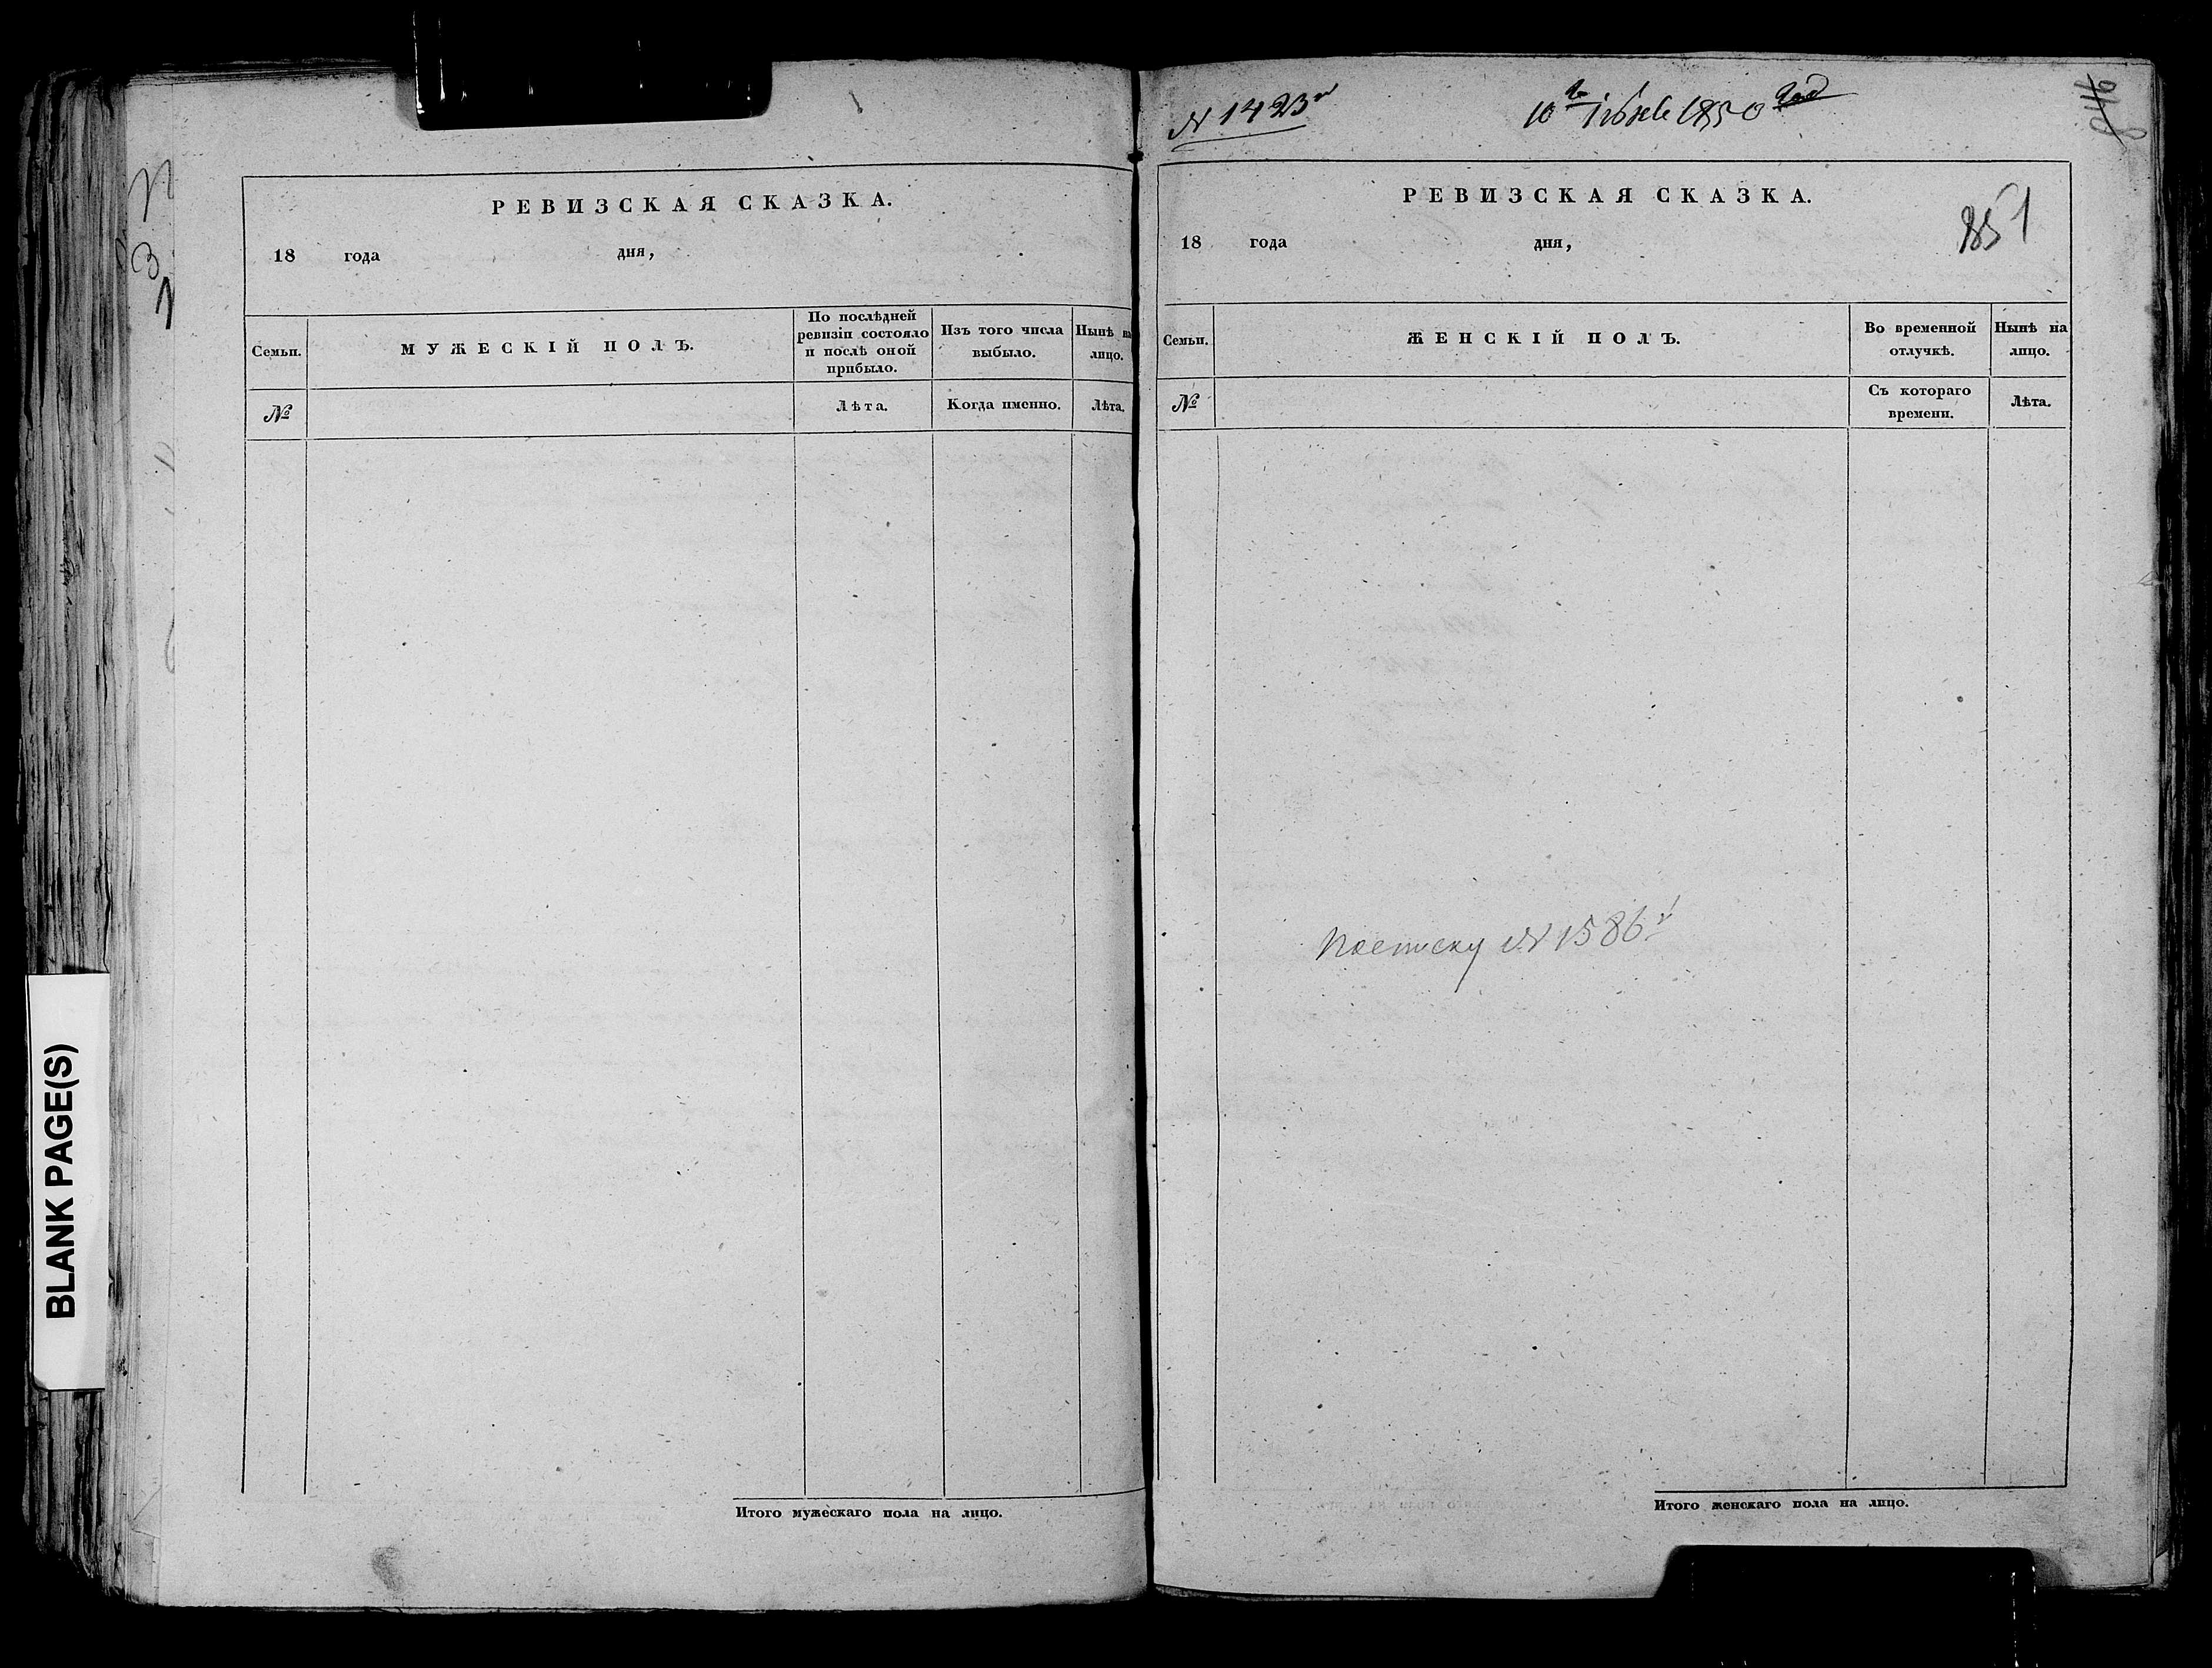 РЕВИЗСКАЯ СКАЗКА.
18 года дня,
Семьи.
МУЖЕСКІЙ ПОЛЪ.
По послѣдней ревизіи состояло и послѣ оной прибыло.
Изъ того числа выбыло.
Нынѣ на лицо.
№
Лѣта.
Когда именно.
Лѣта.
Итого мужескаго пола на лицо.
N 1423
10 1850
846
РЕВИЗСКАЯ СКАЗКА.
851
18 года дня,
Семьи.
ЖЕНСКІЙ ПОЛЪ.
Во временной отлучкѣ.
Нынѣ на лицо.
№
Съ котораго времени.
Лѣта.
N 1586
Итого женскаго пола на лицо.
BLANK PAGE(S)